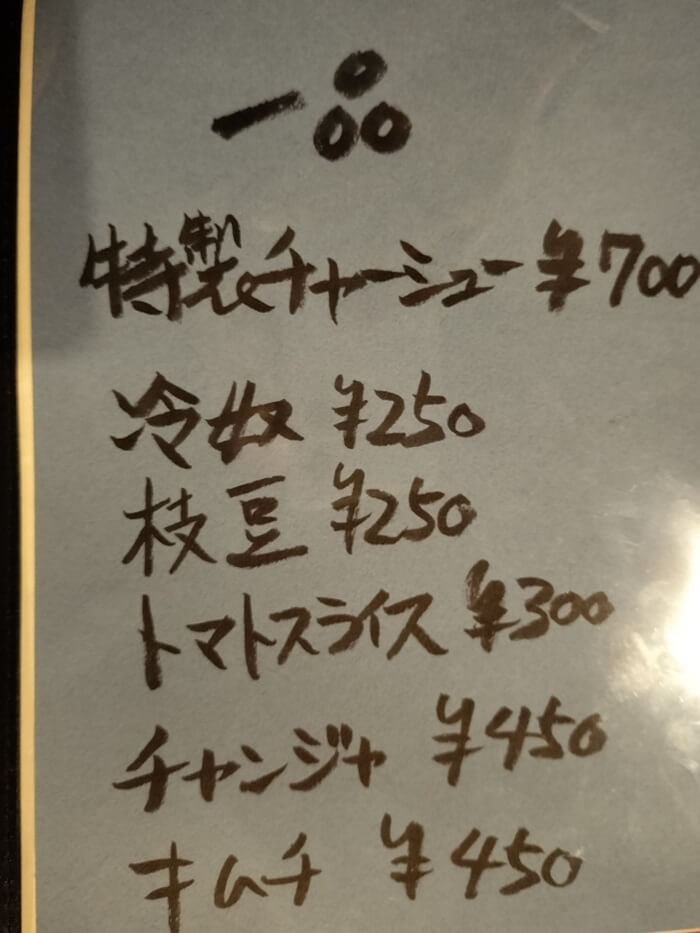 一品
特製チャーシュー ¥700
冷奴 ¥250
枝豆 ¥250
トマトスライス ¥300
チャンジャ ¥450
キムチ ¥450